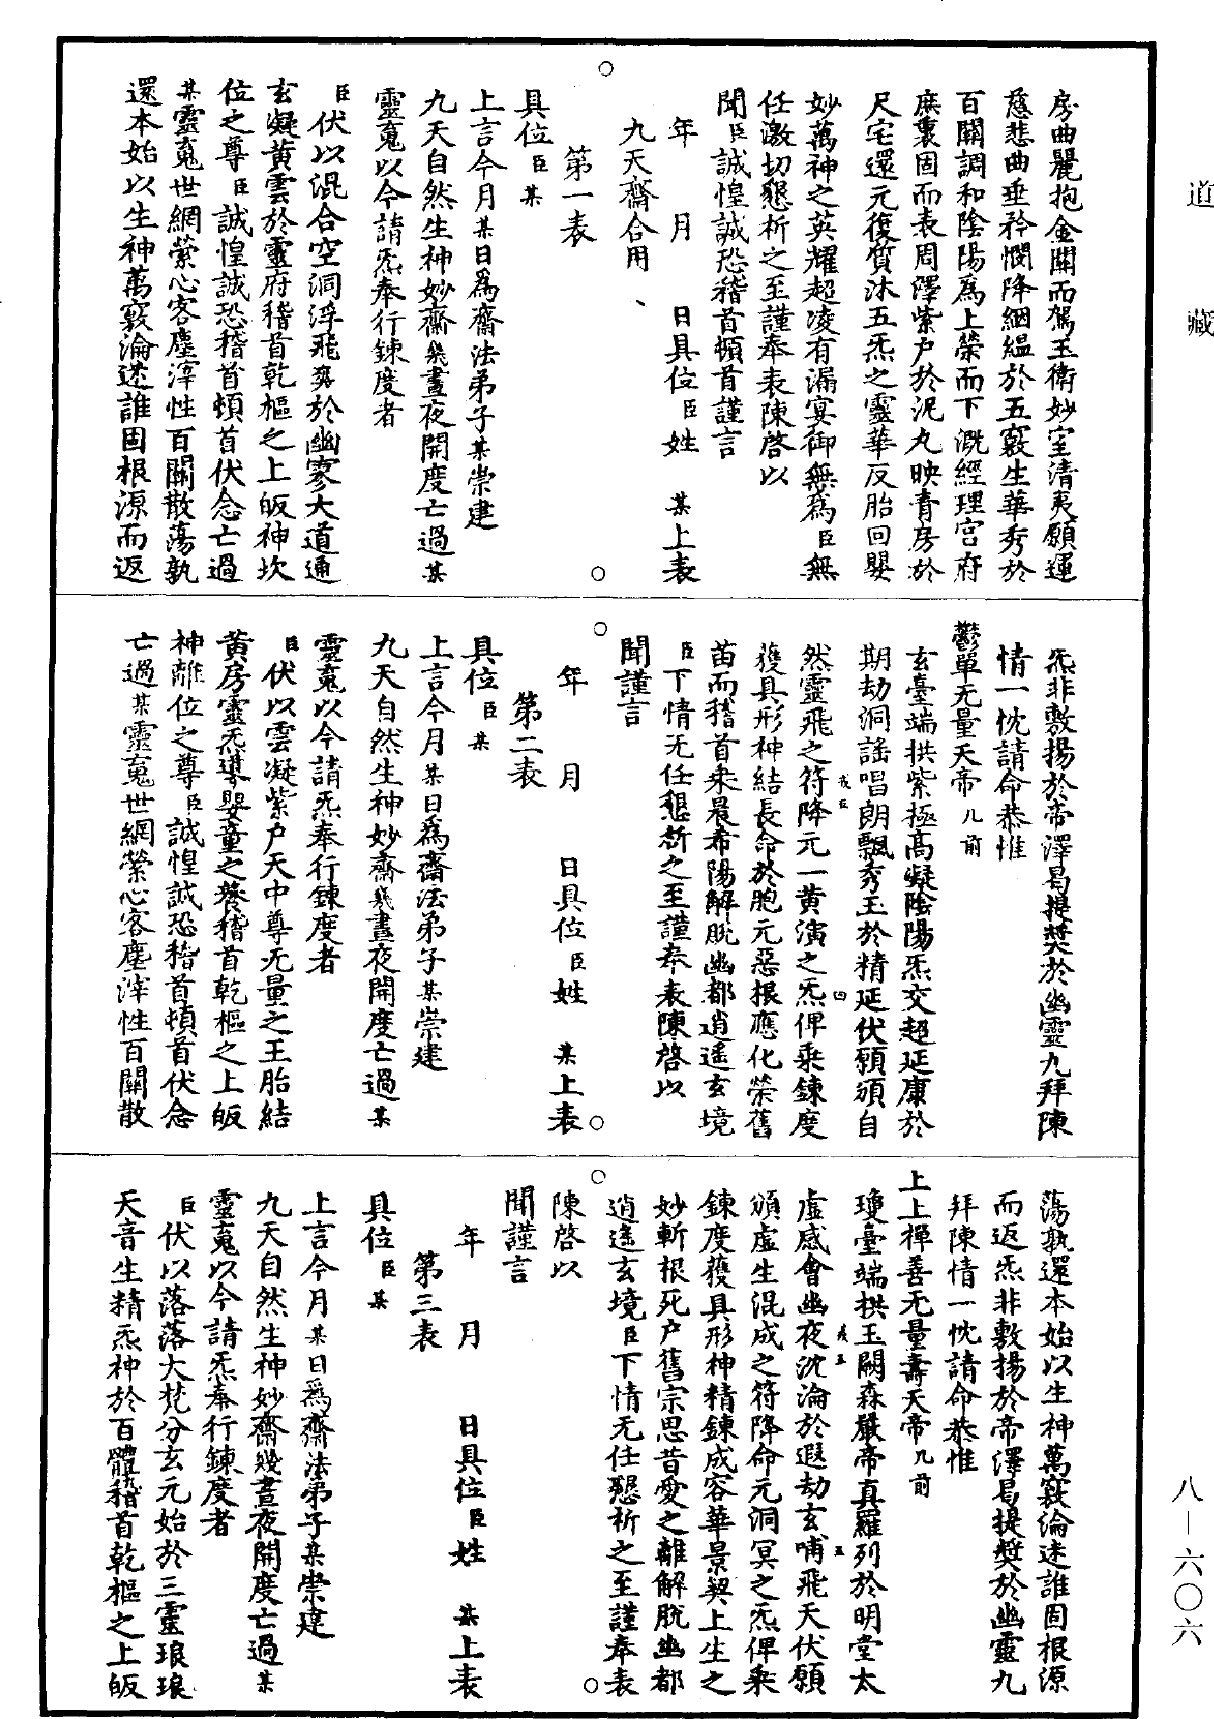 道藏
房曲麗抱金關而駕玉衛妙室清夷願運
慈悲曲垂矜憫降絪縕於五竅生華秀於
百關調和陰陽為上榮而下溉經理宮府
庶裏固而表周澤紫戶於泥丸映青房於
尺宅還元復質沐五炁之靈華反胎回嬰
妙萬神之英耀超凌有漏宴御無為臣無
任激切懇祈之至謹奉表陳啓以
聞臣誠惶誠恐稽首頓首謹言
年 月 日具位臣姓 某上表
九天齋合用
第一表
具位臣某
上言今月某日為齋法弟子某崇建
九天自然生神妙齋幾晝夜開度亡過某
靈䰟以今請炁奉行鍊度者
臣伏以混合空洞浮飛爽於幽寥大道通
玄凝黃雲於靈府稽首乾樞之上皈神坎
位之尊臣誠惶誠恐稽首頓首伏念亡過
某靈䰟世網縈心客塵滓性百關散蕩孰
還本始以生神萬竅淪迷誰固根源而返
炁非敷揚於帝澤曷提奬於幽靈九拜陳
情一忱請命恭惟
鬱單无量天帝几前
玄臺端拱紫極高凝陰陽炁交超延康於
期劫洞謠唱朗飄秀玉於精延伏願頒自
然靈飛之符降元一黃演之炁俾乘鍊度
獲具形神結長命於胞元惡根應化榮舊
苗而稽首來晨希陽解脫幽都逍遙玄境
臣下情无任懇祈之至謹奉表陳啓以
聞謹言
年 月 日具位臣姓 某上表
第二表
具位臣某
上言今月某日為齋法弟子某崇建
九天自然生神妙齋幾晝夜開度亡過某
靈䰟以今請炁奉行鍊度者
臣伏以雲凝紫戶天中尊无量之王胎結
黃房靈炁導嬰童之養稽首乾樞之上皈
神離位之尊臣誠惶誠恐稽首頓首伏念
亡過某靈䰟世網縈心客塵滓性百關散
蕩孰還本始以生神萬竅淪迷誰固根源
而返炁非敷揚於帝澤曷提奬於幽靈九
拜陳情一忱請命恭惟
上上禪善无量壽天帝几前
瓊臺端拱玉闕森嚴帝真羅列於明堂太
虛感會幽夜沈淪於遐劫玄哺飛天伏願
頒虛生混成之符降命元洞冥之炁俾乘
鍊度獲具形神精鍊成容華景契上生之
妙斬根死戶舊宗思昔愛之離解脫幽都
逍遙玄境臣下情无任懇祈之至謹奉表
陳啓以
聞謹言
年 月 日具位臣姓 某上表
第三表
具位臣某
上言今月某日為齋法弟子某崇建
九天自然生神妙齋幾晝夜開度亡過某
靈䰟以今請炁奉行鍊度者
臣伏以落落大梵分玄元始於三靈琅琅
天音生精炁神於百體稽首乾樞之上皈
八—六〇六